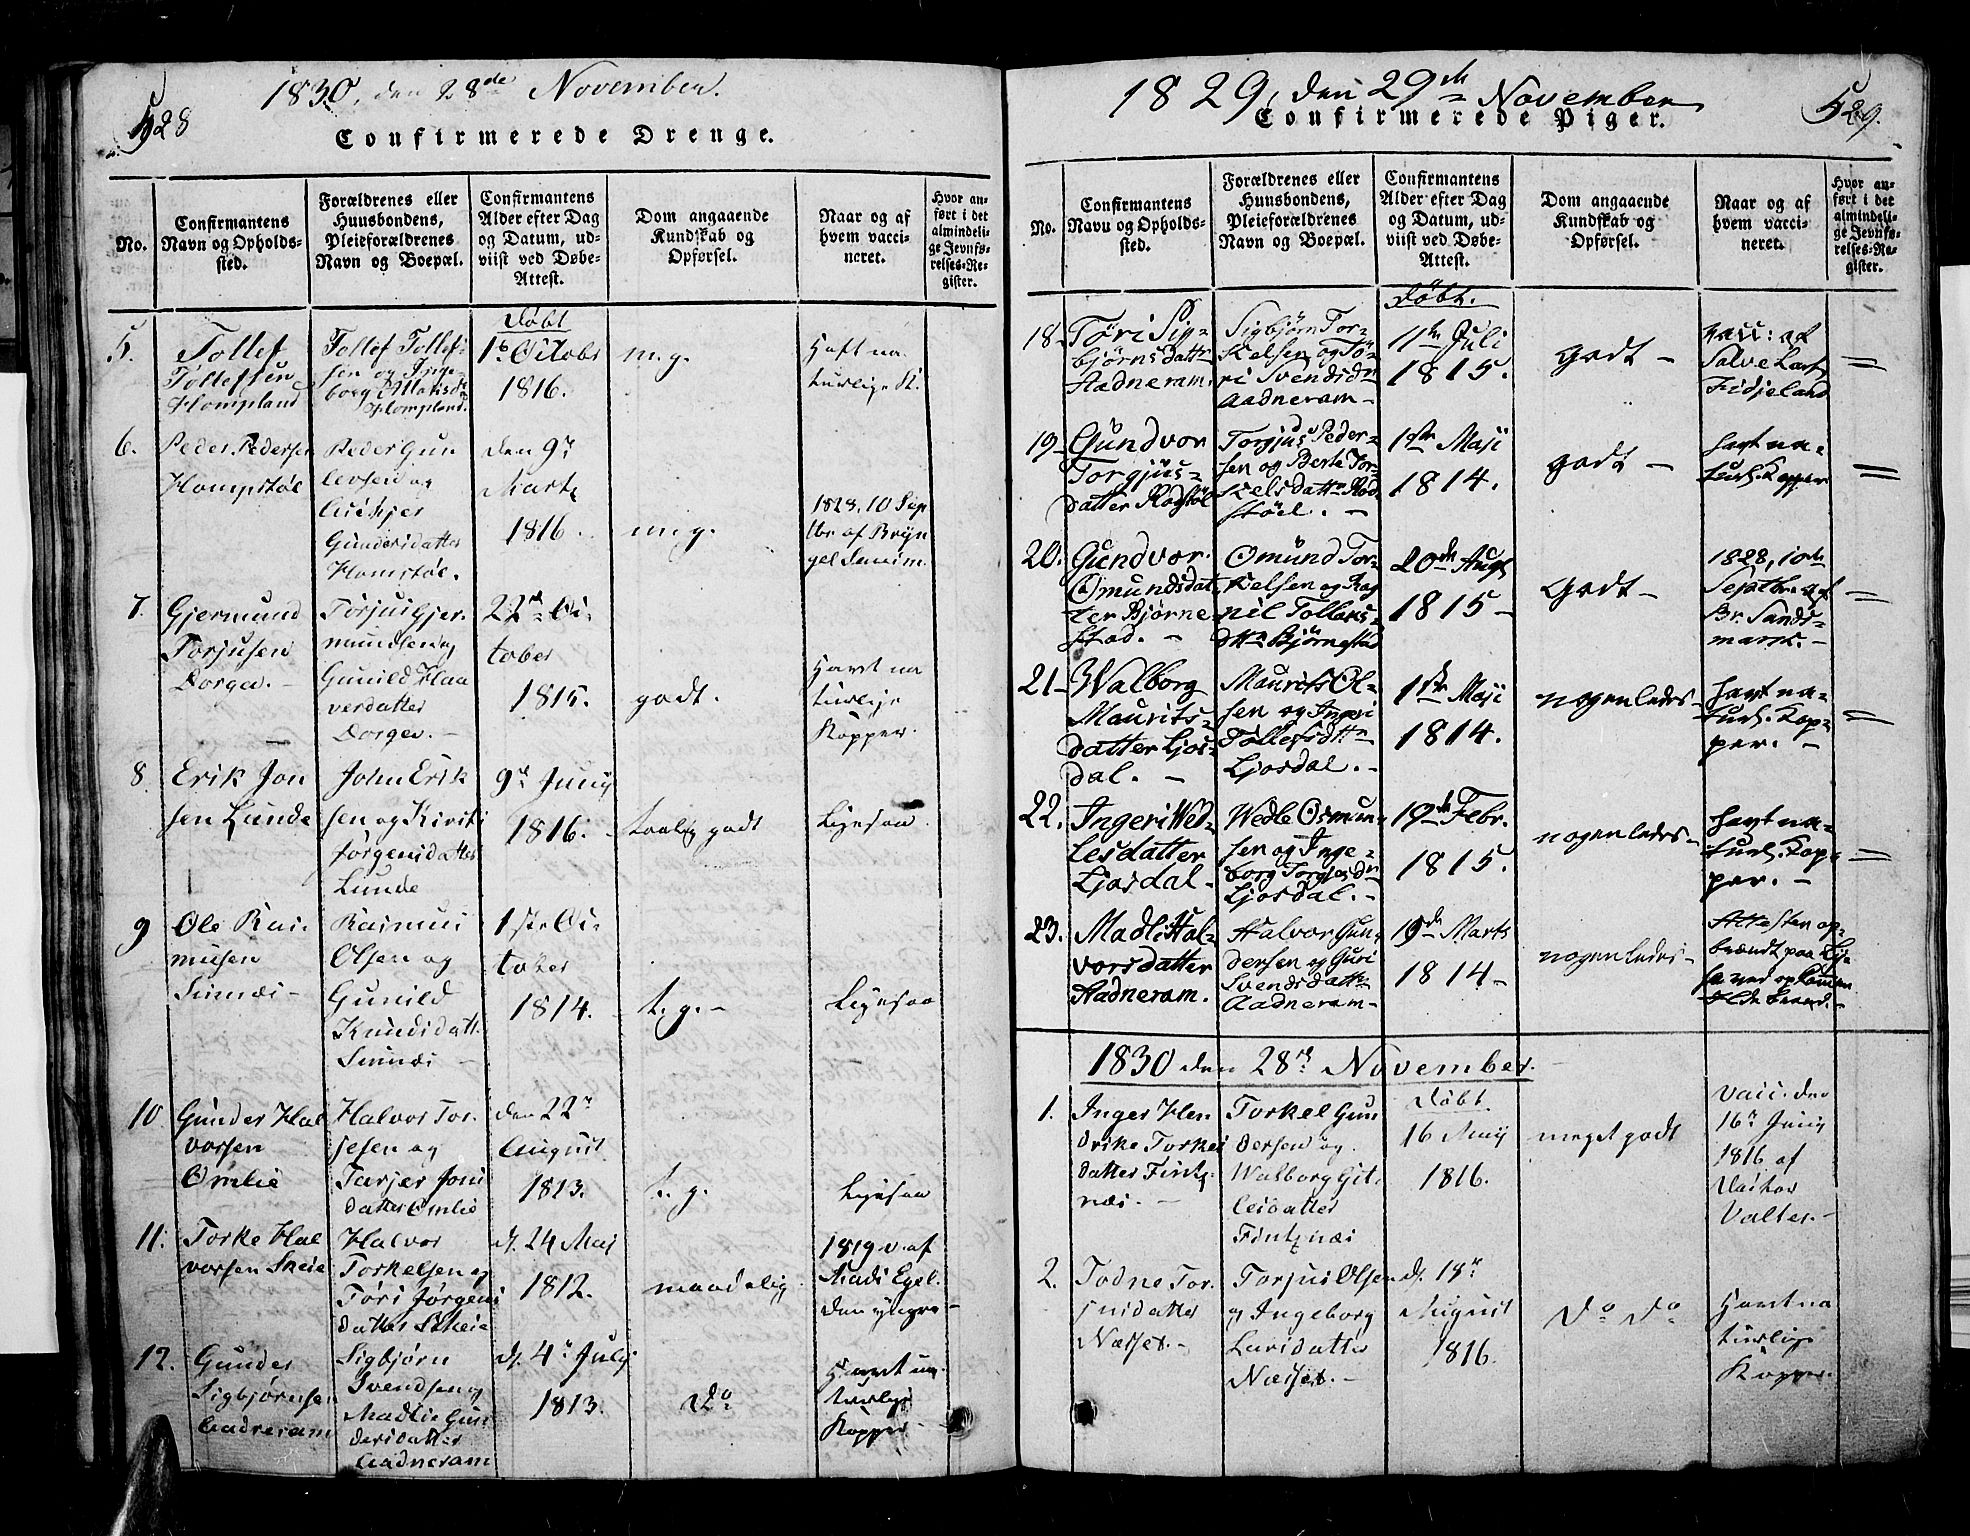 528
1830, den 28de November.
Confirmerede Drenge.
No.
Confirmantens
Navn og Opholds-
sted.
Forældrenes eller
Huusbondens,
Pleieforældrenes
Navn og Boepæl.
Confirmantens
Alder efter Dag
og Datum, ud-
viist ved Døbe-
Attest.
Dom angaaende
Kundskab og
Opførsel.
Naar og af
hvem vacci-
neret.
Hvor an-
ført i det
almindeli-
ge Jevnfø-
relses-Re-
gister.
Døbt
5.
Tollef
Tollefsen
Hompland
Tollef Tollef-
sen og Inge-
borg Matisd
Hompland.
16 Octobr
1816.
m. g.
Haft na
turlige K.
6.
Peder Pedersen
Hompstøl
Peder Gun
levsen og
Aschjer
Gundersdatter
Homstøl.
den 9de
Marts
1816.
m. g.
1828, 10 Sep
tbr af Bryn
gel
7.
Gjermund
Torjusen
Dorgev. -
Torjus Gjer
mundsen og
Gunild Haa
versdatter
Dorgev. -
22de Oc-
tober
1815.
godt.
Havt na
turlige
Kopper.
8.
Erik Jon
sen Lunde
John Erik
sen og Kirsti
Jørgensdatter
Lunde
9de Juny
1816.
taalig godt
Ligesaa
9
Ole Ras-
musen
Sinnæs -
Rasmus
Olsen og
Gunild
Knudsdatt.
Sinnæs -
1ste Oc-
tober
1814.
t. g. -
Ligesaa
10
Gunder Hal
vorsen
Omlie
Halvor Tor-
jesen og
Tarjer Jons
datter Omlie
den 22de
August
1813.
t. g.
Ligesaa
11.
Torke Hal
vorsen Skeie
Halvor
Torkelsen og
Tøri Jørgens
datter Skeie
d. 24 Maj
1812.
maadelig
1819 v. af
Mads Egel.
den yngre -
12.
Gunder
Sigbjørnsen
Aadneram
Sigbjørn
Svendsen og
Madlie Gun
dersdatter
Aadneram
d. 4de July
1813.
Do
Havt na
turlige
Kopper
529.
1829, den 29de November
Confirmerede Piger.
No.
Confirmantens
Navn og Opholds-
sted.
Forældrenes eller
Huusbondens,
Pleieforældrenes
Navn og Boepæl.
Confirmantens
Alder efter Dag
og Datum, ud-
viist ved Døbe-
Attest.
Dom angaaende
Kundskab og
Opførsel.
Naar og af
hvem vacci-
neret.
Hvor an-
ført i det
almindeli-
ge Jevnfø-
relses-Re-
gister.
Døbt.
18.
Tøri Sig-
bjørnsdattr
Aadneram.
Sigbjørn Tor-
kelsen og Tø-
ri Svendsdtr
Aadneram -
11te Juli
1815.
godt -
vacc: af
Salve Lars
Fidjeland
19.
Gundvor
Torgjus-
datter Rodstøl
Torgjus Peder-
sen og Berte Tor-
kelsdattr Rod-
støel. -
1ste Maji
1814.
godt -
havt na-
turl. Kopper
20.
Gundvor
Omundsdat-
ter Bjørne
stad. -
Omund Tor-
kelsen og Rag
nil Tollevs-
dtr Bjørnestad
20de Augt
1815 -
Godt -
1828, 10de
Septbr. af
Br. Sinds-
mark. -
21.
Walborg
Maurits-
datter Ljos-
dal. -
Maurits Ol-
sen og Ingeri
Tollefsdattr
Ljosdal. -
1ste Maji
1814.
nogenledes -
havt na-
turl. Kop-
per. -
22.
Ingeri Wed-
lesdatter
Ljosdal -
Wedle Osmun-
sen og Inge-
borg Torgjusdtr
Ljosdal. -
19de Febr.
1815.
nogenledes -
havt na-
turl. Kop-
per. -
23.
Madli Hal-
vorsdatter
Aadneram.
Halvor Gun-
dersen og Guri
Svendsdattr
Aadneram -
19de Marts
1814 -
nogenledes -
Attesten op-
brændt paa
1830 den 28de November.
Døbt.
1.
Inger Hen
drike Torkels
datter Fintz-
næs. -
Torkel Gun
dersen og
Walborg Git-
lesdatter
Fintznæs
16 Maij
1816.
meget godt
Vacc. den
16de Juny
1816 af
Doctor
Valter. -
2.
Todne Tor-
jusdatter
Næsset. -
Torjus Olsen
og Ingeborg
Larsdatter
Næsset. -
August
1816.
Do Do
Havt na
turlige
Kopper.